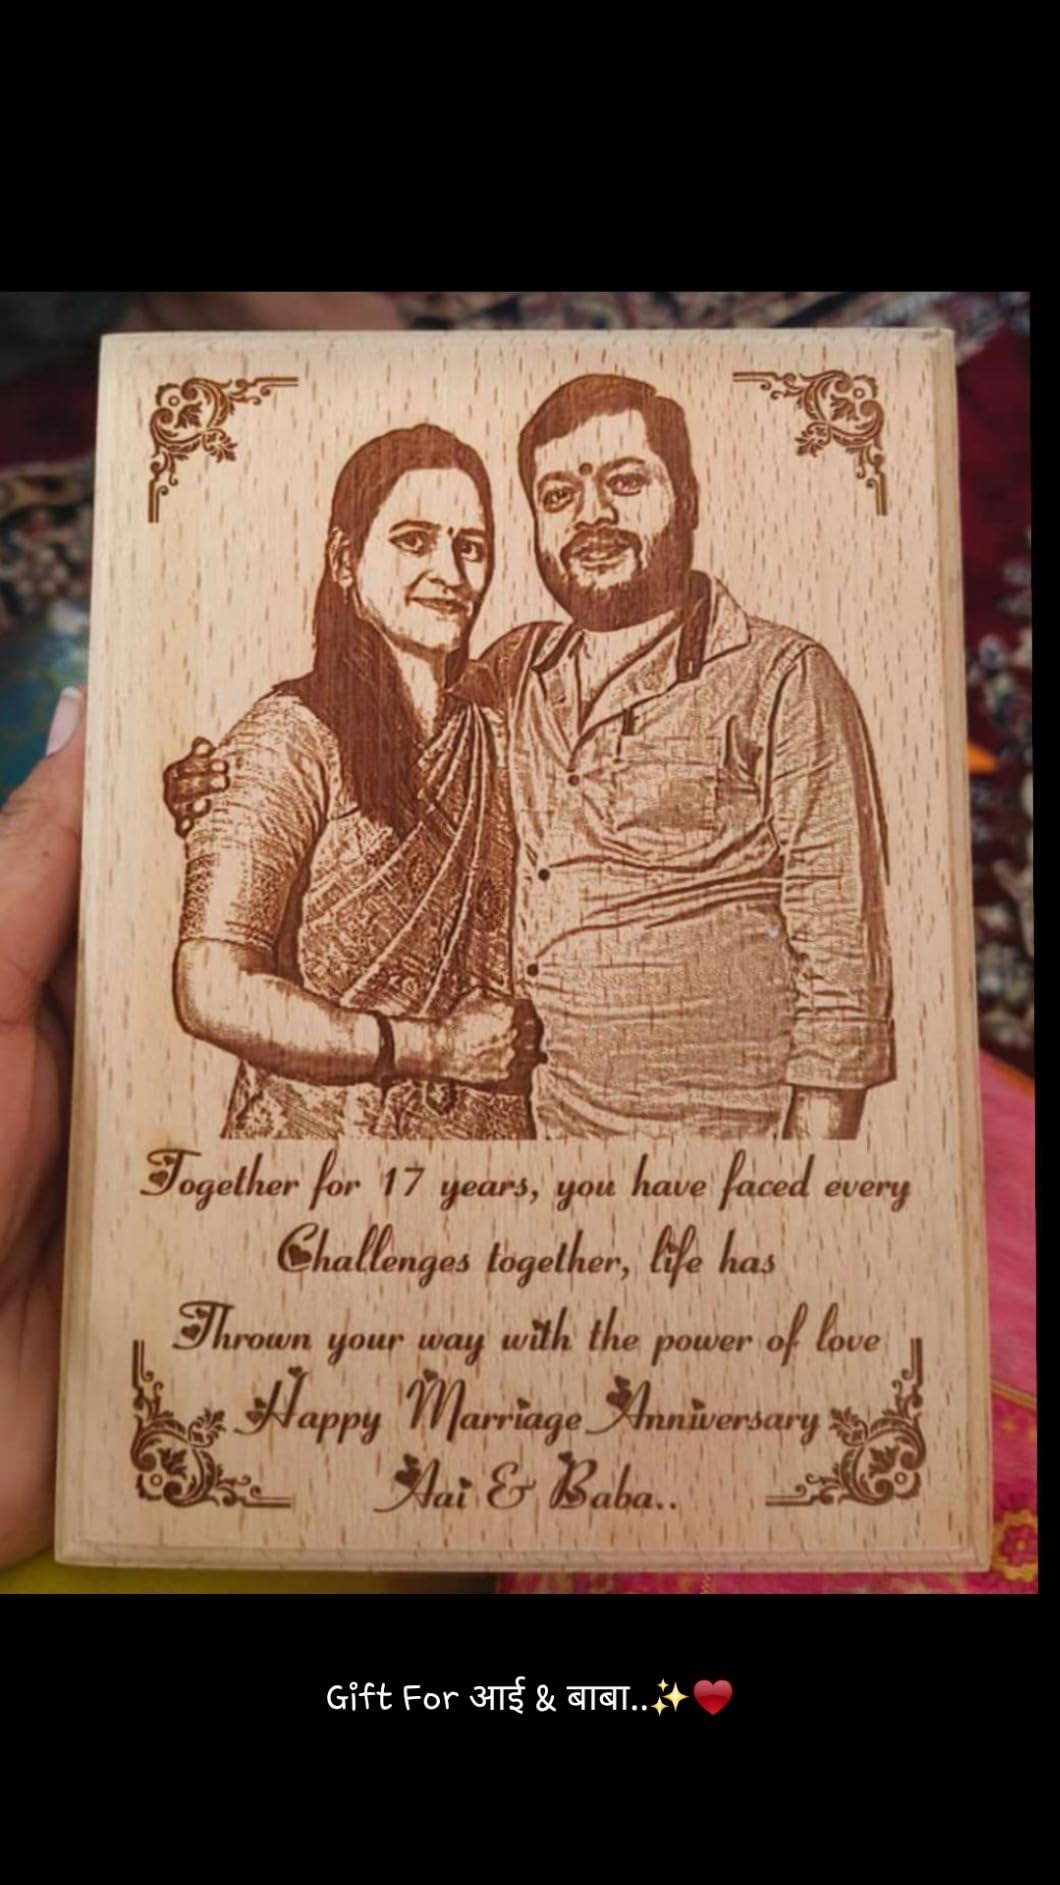 Together for 17 years, you have faced every
Challenges together, life has
Thrown your way with the power of love
Happy Marriage Anniversary
Aai & Baba..
Gift For आई & बाबा..✨❤️